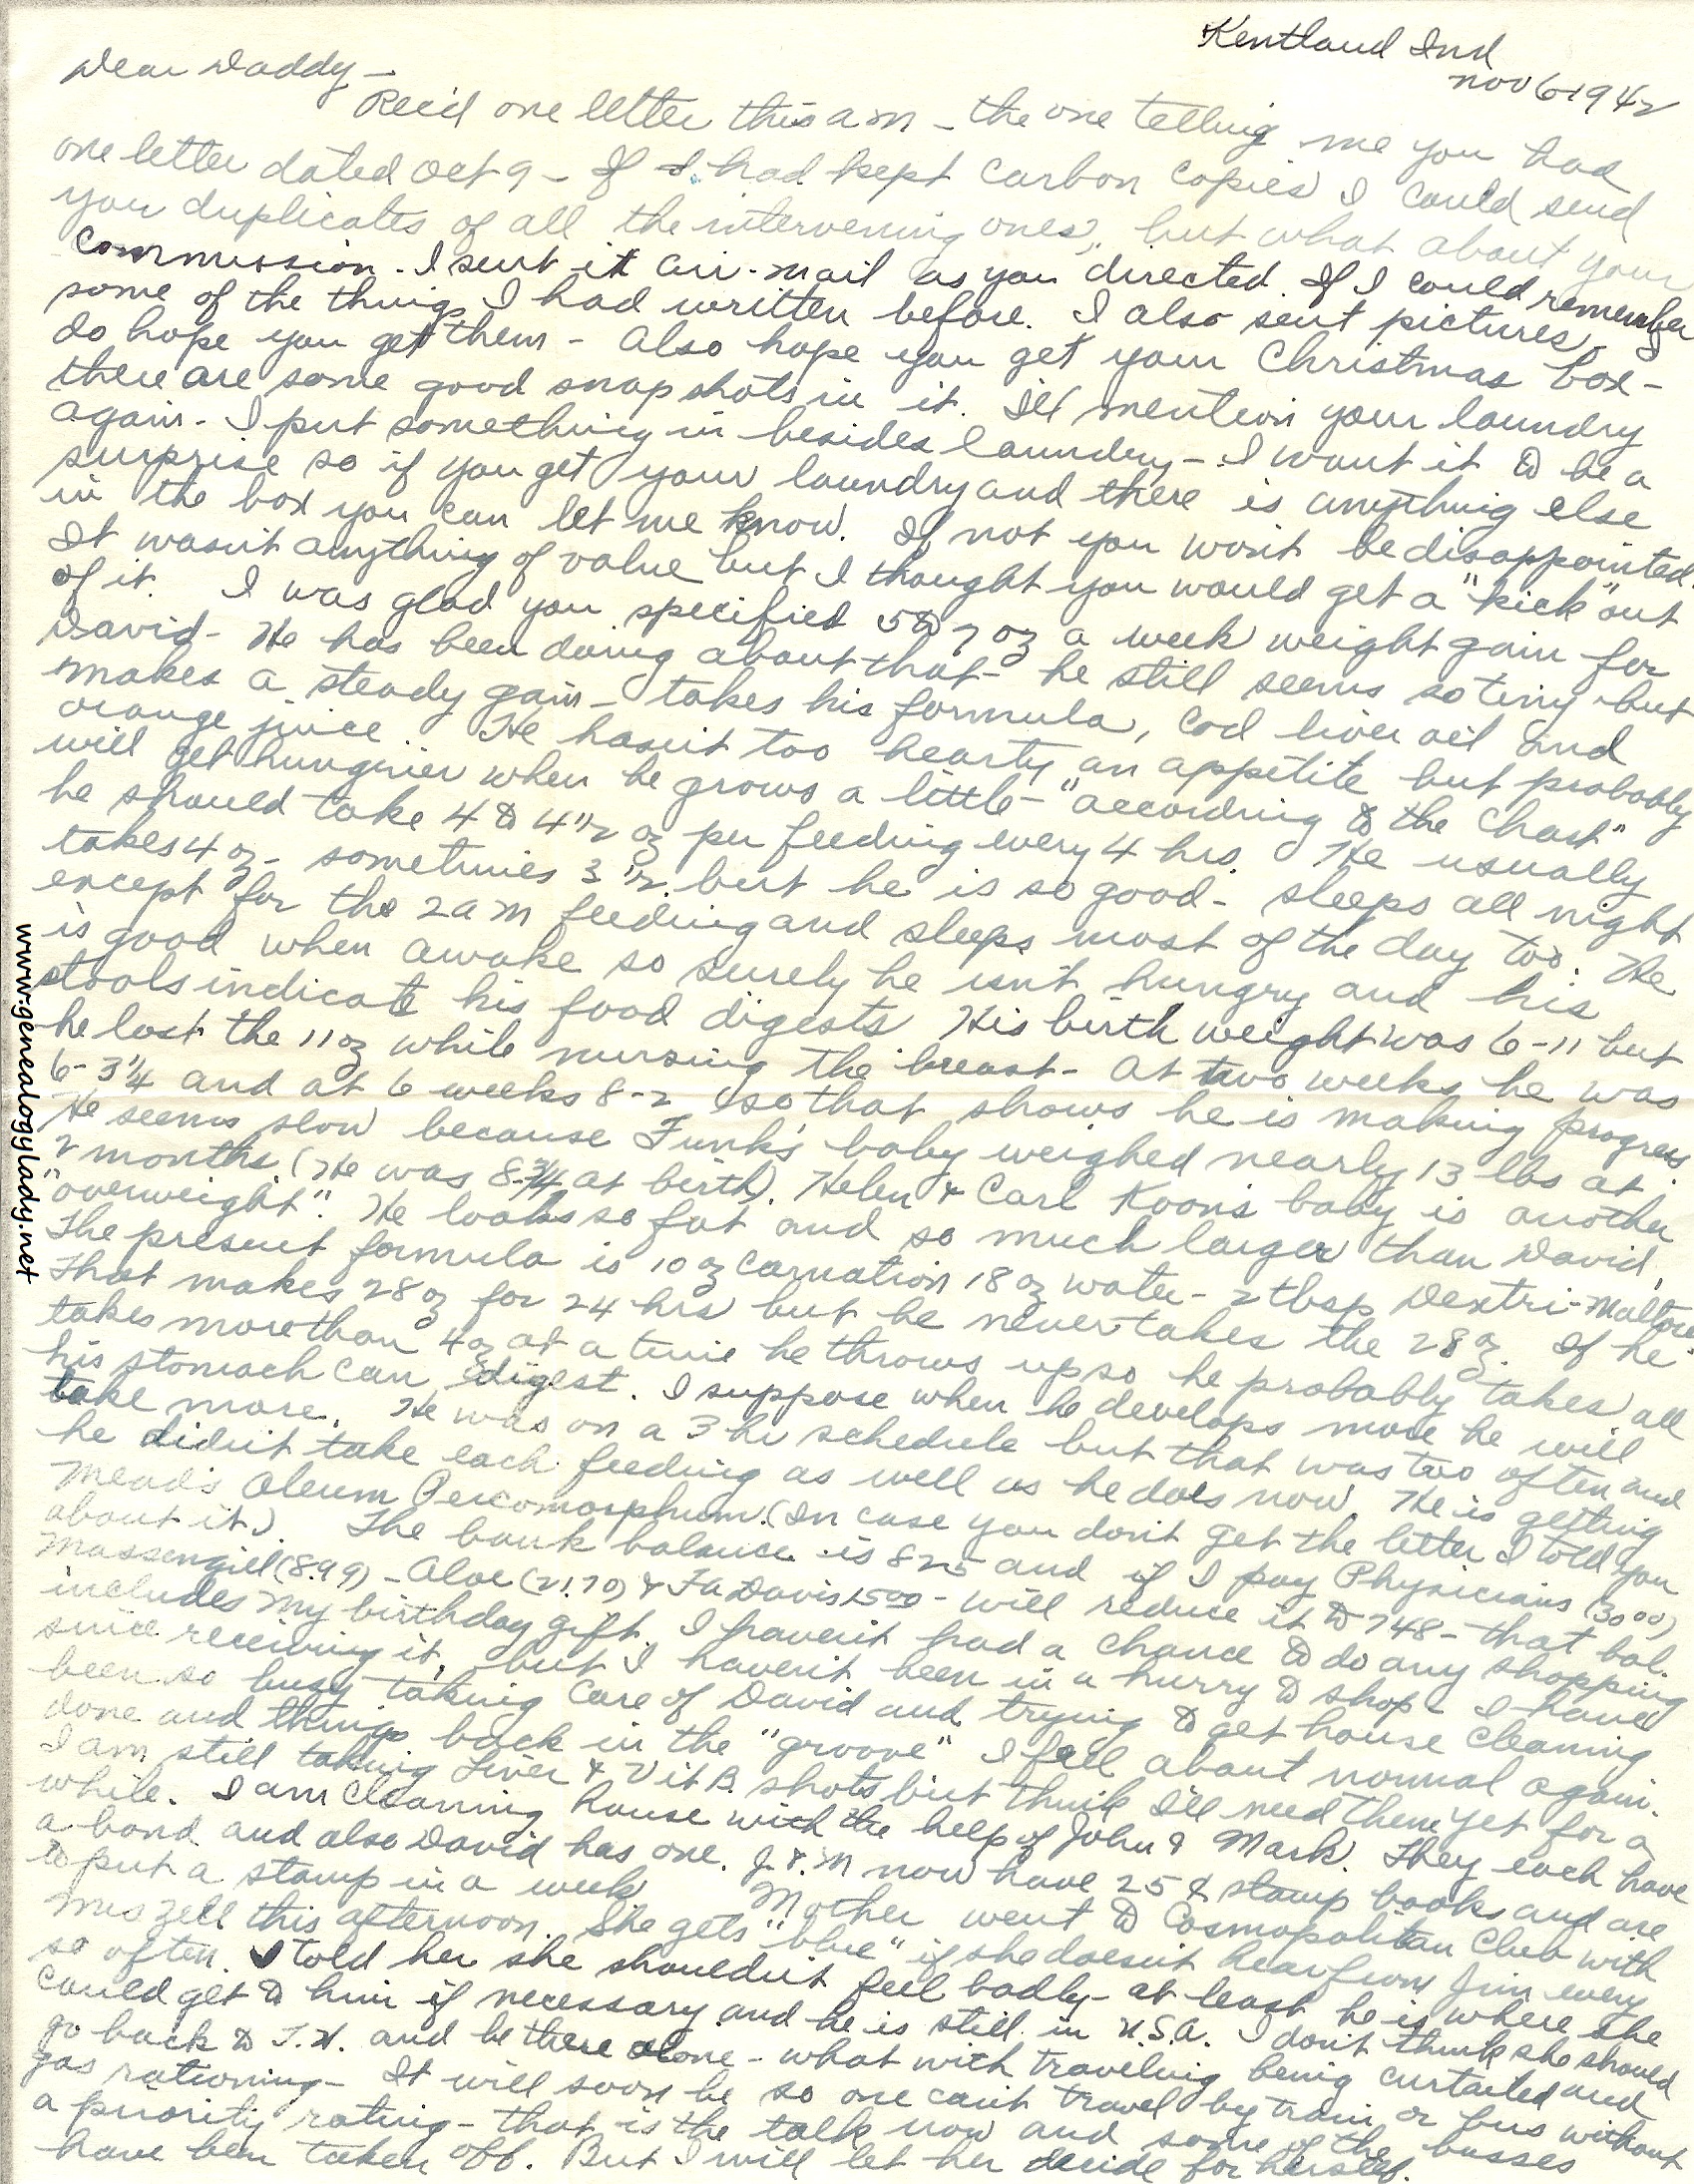 Kentland Ind
Nov 6 1942
Dear Daddy -
Rec'd one letter this am - the one telling me you had
one letter dated Oct 9 - If I had kept carbon copies I could send
you duplicates of all the intervening ones, but what about your
commission - I sent it air-mail as you directed. If I could remember
some of the things I had written before. I also sent pictures - I
do hope you get them - Also hope you get your Christmas box -
there are some good snapshots in it. I'll mention your laundry
again - I put something in besides laundry - I want it to be a
surprise so if you get your laundry and there is anything else
in the box you can let me know. If not you won't be disappointed.
It wasn't anything of value but I thought you would get a "kick" out
of it. I was glad you specified 5 to 7 oz a week weight gain for
David - He has been doing about that - he still seems so tiny but
makes a steady gain - takes his formula, cod liver oil and
orange juice. He hasn't too hearty an appetite but probably
will get hungrier when he grows a little - "according to the chart"
he should take 4 to 4 1/2 oz per feeding every 4 hrs. He usually
takes 4 oz - sometimes 3 1/2 but he is so good - sleeps all night
except for the 2 am feeding and sleeps most of the day too. He
is good when awake so surely he isn't hungry and his
stools indicate his food digests. His birth weight was 6-11 but
he lost the 11 oz while nursing the breast - At two weeks he was
6-3 1/4 and at 6 weeks 8-2 so that shows he is making progress.
He seems slow because Funk's baby weighed nearly 13 lbs at
2 months (He was 8-3/4 at birth). Helen & Carl Koon's baby is another
"overweight". He looks so fat and so much larger than David.
The present formula is 10 oz carnation 18 oz water - 2 tbsp Dextri-Maltose
That makes 28 oz for 24 hrs but he never takes the 28 oz. If he
takes more than 4 oz at a time he throws up so he probably takes all
his stomach can digest. I suppose when he develops more he will
take more. He was on a 3 hr schedule but that was too often and
he didn't take each feeding as well as he does now. He is getting
Mead's Oleum Percomorphum. (In case you don't get the letter I told you
about it.) The bank balance is 825 and if I pay Physicians (30.00)
Massengill (8.99) - Aloe (21.70) & F A Davis 15.00 - will reduce it to 748 - that bal.
includes my birthday gift. I haven't had a chance to do any shopping
since receiving it, but I haven't been in a hurry to shop - I have
been so busy taking care of David and trying to get house cleaning
done and things back in the "groove" I feel about normal again.
I am still taking Liver & Vit B. shots but think I'll need them yet for a
while. I am cleaning house with the help of John & Mark. They each have
a bond and also David has one. J. & M now have 25¢ stamp books and are
to put a stamp in a week. Mother went to Cosmopolitan Club with
Mrs Zell this afternoon. She gets "blue" if she doesn't hear from Jim every
so often. I told her she shouldn't feel badly - at least he is where she
could get to him if necessary and he is still in U.S.A. I don't think she should
go back to T.H. and be there alone - what with traveling being curtailed and
gas rationing - It will soon be so one can't travel by train or bus without
a priority rating - that is the talk now and some of the busses
have been taken off. But I will let her decide for herself.
www.genealogylady.net